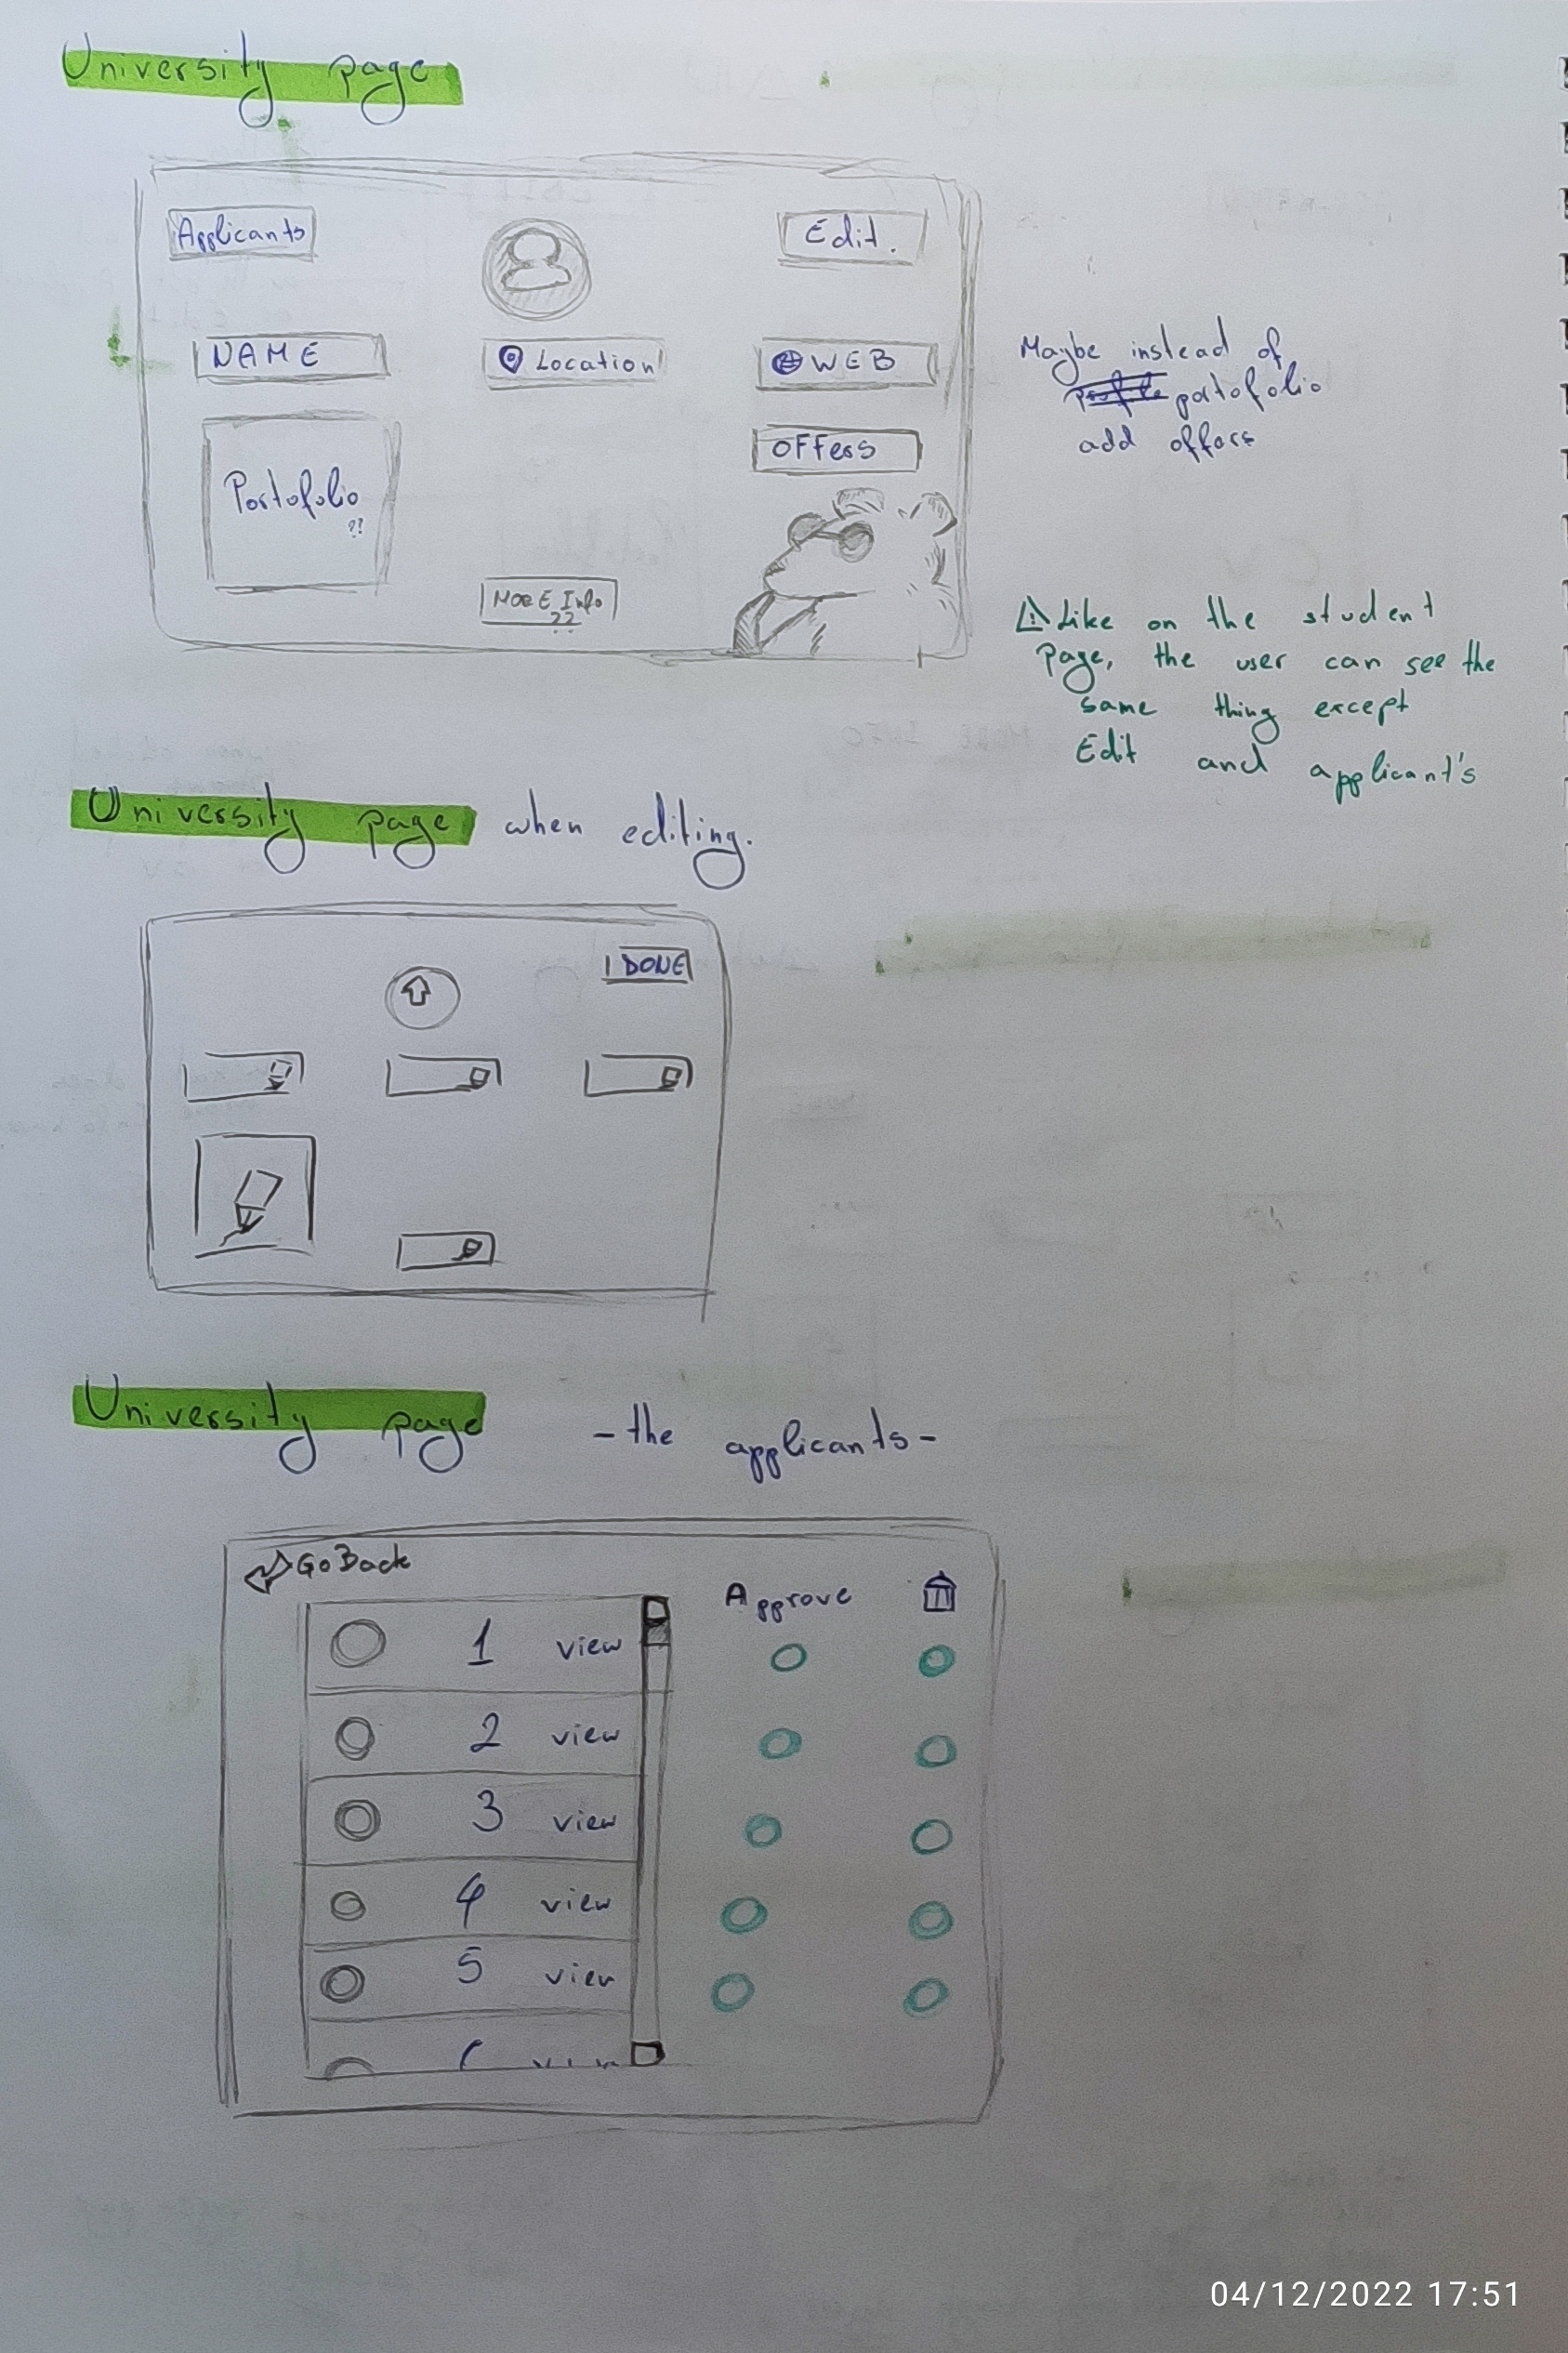 University page
Applicants
Edit.
NAME
Location
WEB
Portofolio
??
OFFers
MORE Info
??
Maybe instead of
portofolio
add offers
⚠ Like on the student
page, the user can see the
same thing except
Edit and applicant's
University page when editing.
DONE
University page - the applicants -
Go Back
Approve
1 view
2 view
3 view
4 view
5 view
04/12/2022 17:51